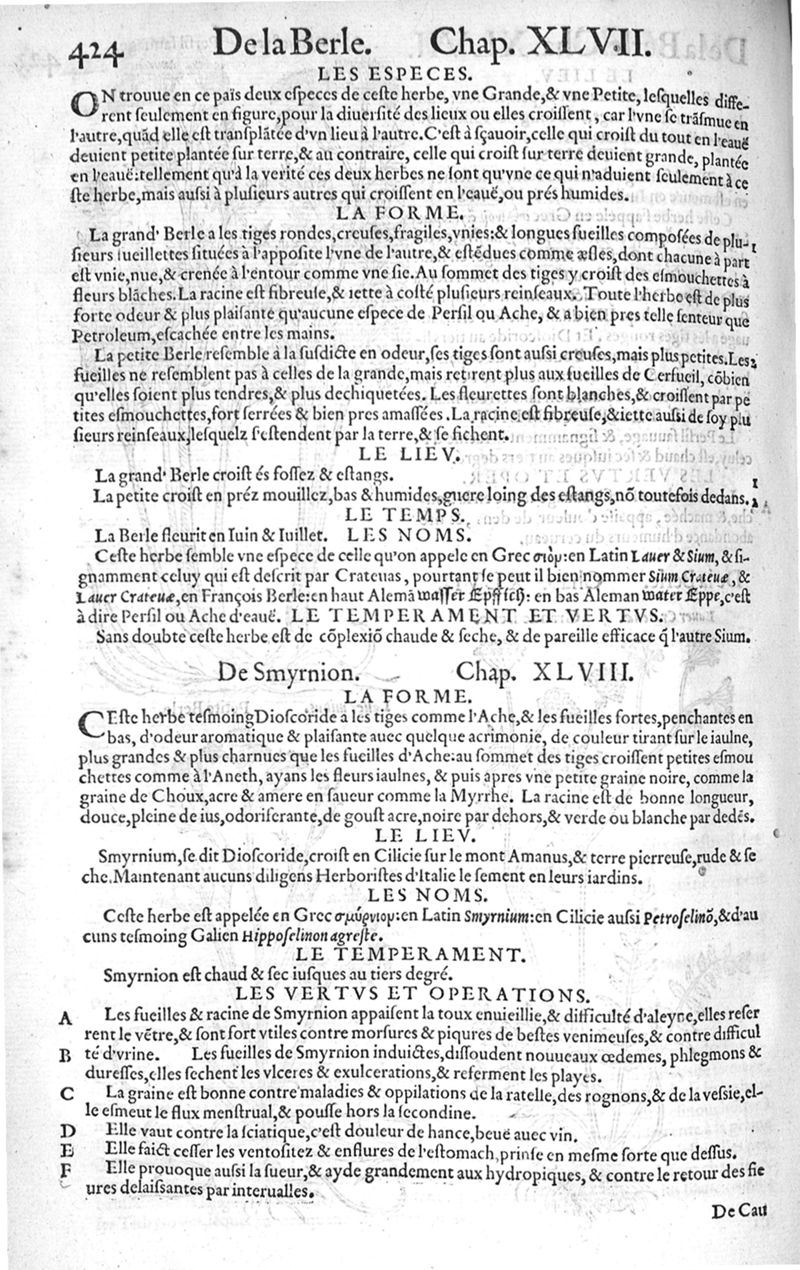 424 De la Berle. Chap. XLVII.
LES ESPECES.
ON trouue en ce païs deux eſpeces de ceſte herbe, vne Grande,& vne Petite, leſquelles diffe-
rent ſeulement en figure,pour la diuerſité des lieux ou elles croiſſent, car l'vne ſe trãſmue en
l'autre,quãd elle eſt tranſplãtée d'vn lieu à l'autre.C'eſt à ſçauoir,celle qui croiſt du tout en l'eauë
deuient petite plantée ſur terre,& au contraire, celle qui croiſt ſur terre deuient grande, plantée
en l'eauë:tellement qu'à la verité ces deux herbes ne ſont qu'vne ce qui n'aduient ſeulement à ce
ſte herbe,mais auſsi à pluſieurs autres qui croiſſent en l'eauë,ou prés humides.
LA FORME.
La grand' Berle a les tiges rondes,creuſes,fragiles,vnies:& longues fueilles compoſées de plu-
ſieurs fueillettes ſituées à l'appoſite l'vne de l'autre,& eſtẽdues comme æſles,dont chacune à part
eſt vnie,nue,& crenée à l'entour comme vne ſie.Au ſommet des tiges y croiſt des eſmouchettes à
fleurs blãches.La racine eſt fibreuſe,& iette à coſté pluſieurs reinſeaux. Toute l'herbe eſt de plus
forte odeur & plus plaiſante qu'aucune eſpece de Perſil ou Ache, & a bien pres telle ſenteur que
Petroleum,eſcachée entre les mains.
La petite Berle reſemble à la ſuſdicte en odeur,ſes tiges ſont auſsi creuſes,mais plus petites.Les
fueilles ne reſemblent pas à celles de la grande,mais retirent plus aux fueilles de Cerfueil, cõbien
qu'elles ſoient plus tendres,& plus dechiquetées. Les fleurettes ſont blanches,& croiſſent par pe
tites eſmouchettes,fort ſerrées & bien pres amaſſées .La racine eſt fibreuſe,& iette auſsi de ſoy plu
ſieurs reinſeaux,leſquelz ſ'eſtendent par la terre,& ſe fichent.
LE LIEV.
La grand' Berle croiſt és foſſez & eſtangs.
La petite croiſt en préz mouillez,bas & humides,guere loing des eſtangs,nõ toutefois dedans.
LE TEMPS.
La Berle fleurit en Iuin & Iuillet. LES NOMS.
Ceſte herbe ſemble vne eſpece de celle qu'on appele en Grec σιον:en Latin Lauer & Sium, & ſi-
gnamment celuy qui eſt deſcrit par Crateuas, pourtant ſe peut il bien nommer Sium Crateuæ, &
Lauer Crateuæ,en François Berle:en haut Alemã Waſſer Epffich: en bas Aleman Water Eppe,c'eſt
à dire Perſil ou Ache d'eauë. LE TEMPERAMENT ET VERTVS.
Sans doubte ceſte herbe eſt de cõplexiõ chaude & ſeche, & de pareille efficace q̃ l'autre Sium.
De Smyrnion. Chap. XLVIII.
LA FORME.
CEſte herbe teſmoing Dioſcoride a les tiges comme l'Ache,& les fueilles fortes,penchantes en
bas, d'odeur aromatique & plaiſante auec quelque acrimonie, de couleur tirant ſur le iaulne,
plus grandes & plus charnues que les fueilles d'Ache:au ſommet des tiges croiſſent petites eſmou
chettes comme à l'Aneth, ayans les fleurs iaulnes, & puis apres vne petite graine noire, comme la
graine de Choux,acre & amere en ſaueur comme la Myrrhe. La racine eſt de bonne longueur,
douce,pleine de ius,odoriferante,de gouſt acre,noire par dehors,& verde ou blanche par dedẽs.
LE LIEV.
Smyrnium,ſe dit Dioſcoride,croiſt en Cilicie ſur le mont Amanus,& terre pierreuſe,rude & ſe
che.Maintenant aucuns diligens Herboriſtes d'Italie le ſement en leurs iardins.
LES NOMS.
Ceſte herbe eſt appelée en Grec σμύρνιον:en Latin Smyrnium:en Cilicie auſsi Petroſelinõ,&d'au
cuns teſmoing Galien Hippoſelinon agreſte.
LE TEMPERAMENT.
Smyrnion eſt chaud & ſec iuſques au tiers degré.
LES VERTVS ET OPERATIONS.
A Les fueilles & racine de Smyrnion appaiſent la toux enuieillie,& difficulté d'aleyne,elles reſer
rent le vẽtre,& ſont fort vtiles contre morſures & piqures de beſtes venimeuſes,& contre difficul
B té d'vrine. Les fueilles de Smyrnion induictes,diſſoudent nouueaux œdemes, phlegmons &
dureſſes,elles ſechent les vlceres & exulcerations,& referment les playes.
C La graine eſt bonne contre maladies & oppilations de la ratelle,des rognons,& de la veſsie,el-
le eſmeut le flux menſtrual,& pouſſe hors la ſecondine.
D Elle vaut contre la ſciatique,c'eſt douleur de hance,beuë auec vin.
E Elle faict ceſſer les ventoſitez & enflures de l'eſtomach,prinſe en meſme ſorte que deſſus.
F Elle prouoque auſsi la ſueur,& ayde grandement aux hydropiques, & contre le retour des fie
ures delaiſſantes par interualles.
De Cau